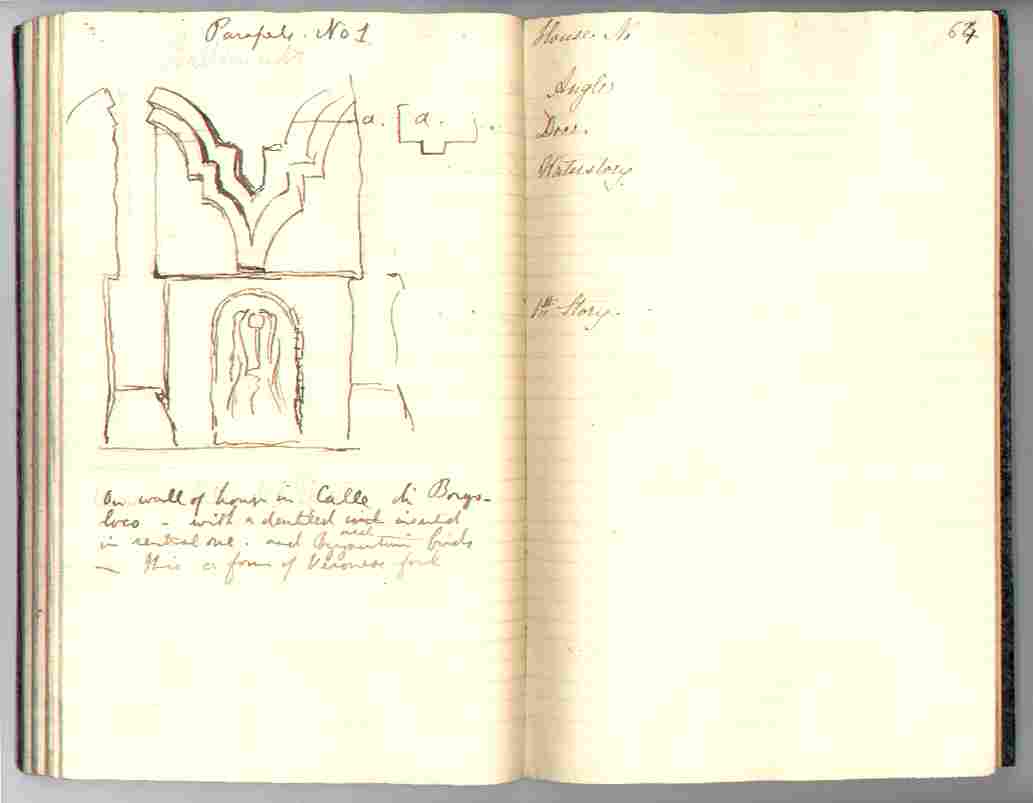 Parapets. No 1
a. a.
On wall of house in Calle di Borgo-
loco - with a dentiled inserted
in central one. and Byzantine birds
- this a form of Veronese
House. No
64
Angles
Door.
Waterstory
1st Story.